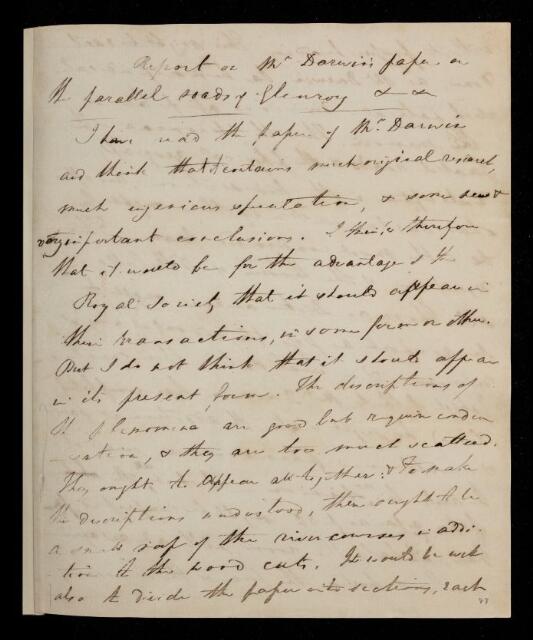 Report on Mr Darwin's paper on
the parallel roads of Glenroy & &
I have read the paper of Mr Darwin
and think that it contains much original research,
much ingenious speculation, & some new &
very important conclusions. I think therefore
that it would be for the advantage of the
Royal Society that it should appear in
their transactions, in some form or other.
But I do not think that it should appear
in its present form. The descriptions of
the phenomena are good but require conden
-sation, & they are too much scattered.
They ought to appear all together: & to make
the descriptions understood, there ought to be
a small map of the river courses in addi-
-tion to the wood cuts. It would be well
also to divide the paper into sections, each